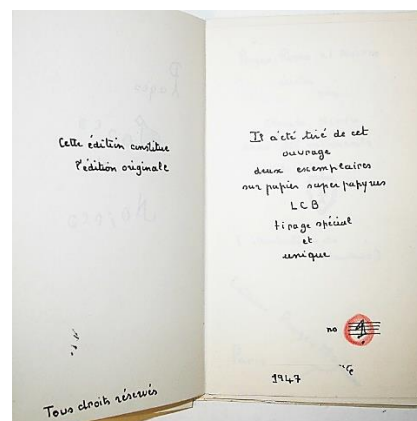 Cette édition constitue
l'édition originale
Tous droits réservés
Il a été tiré de cet
ouvrage
deux exemplaires
sur papier super papyrus
LCB
tirage spécial
et
unique
no 1
1947